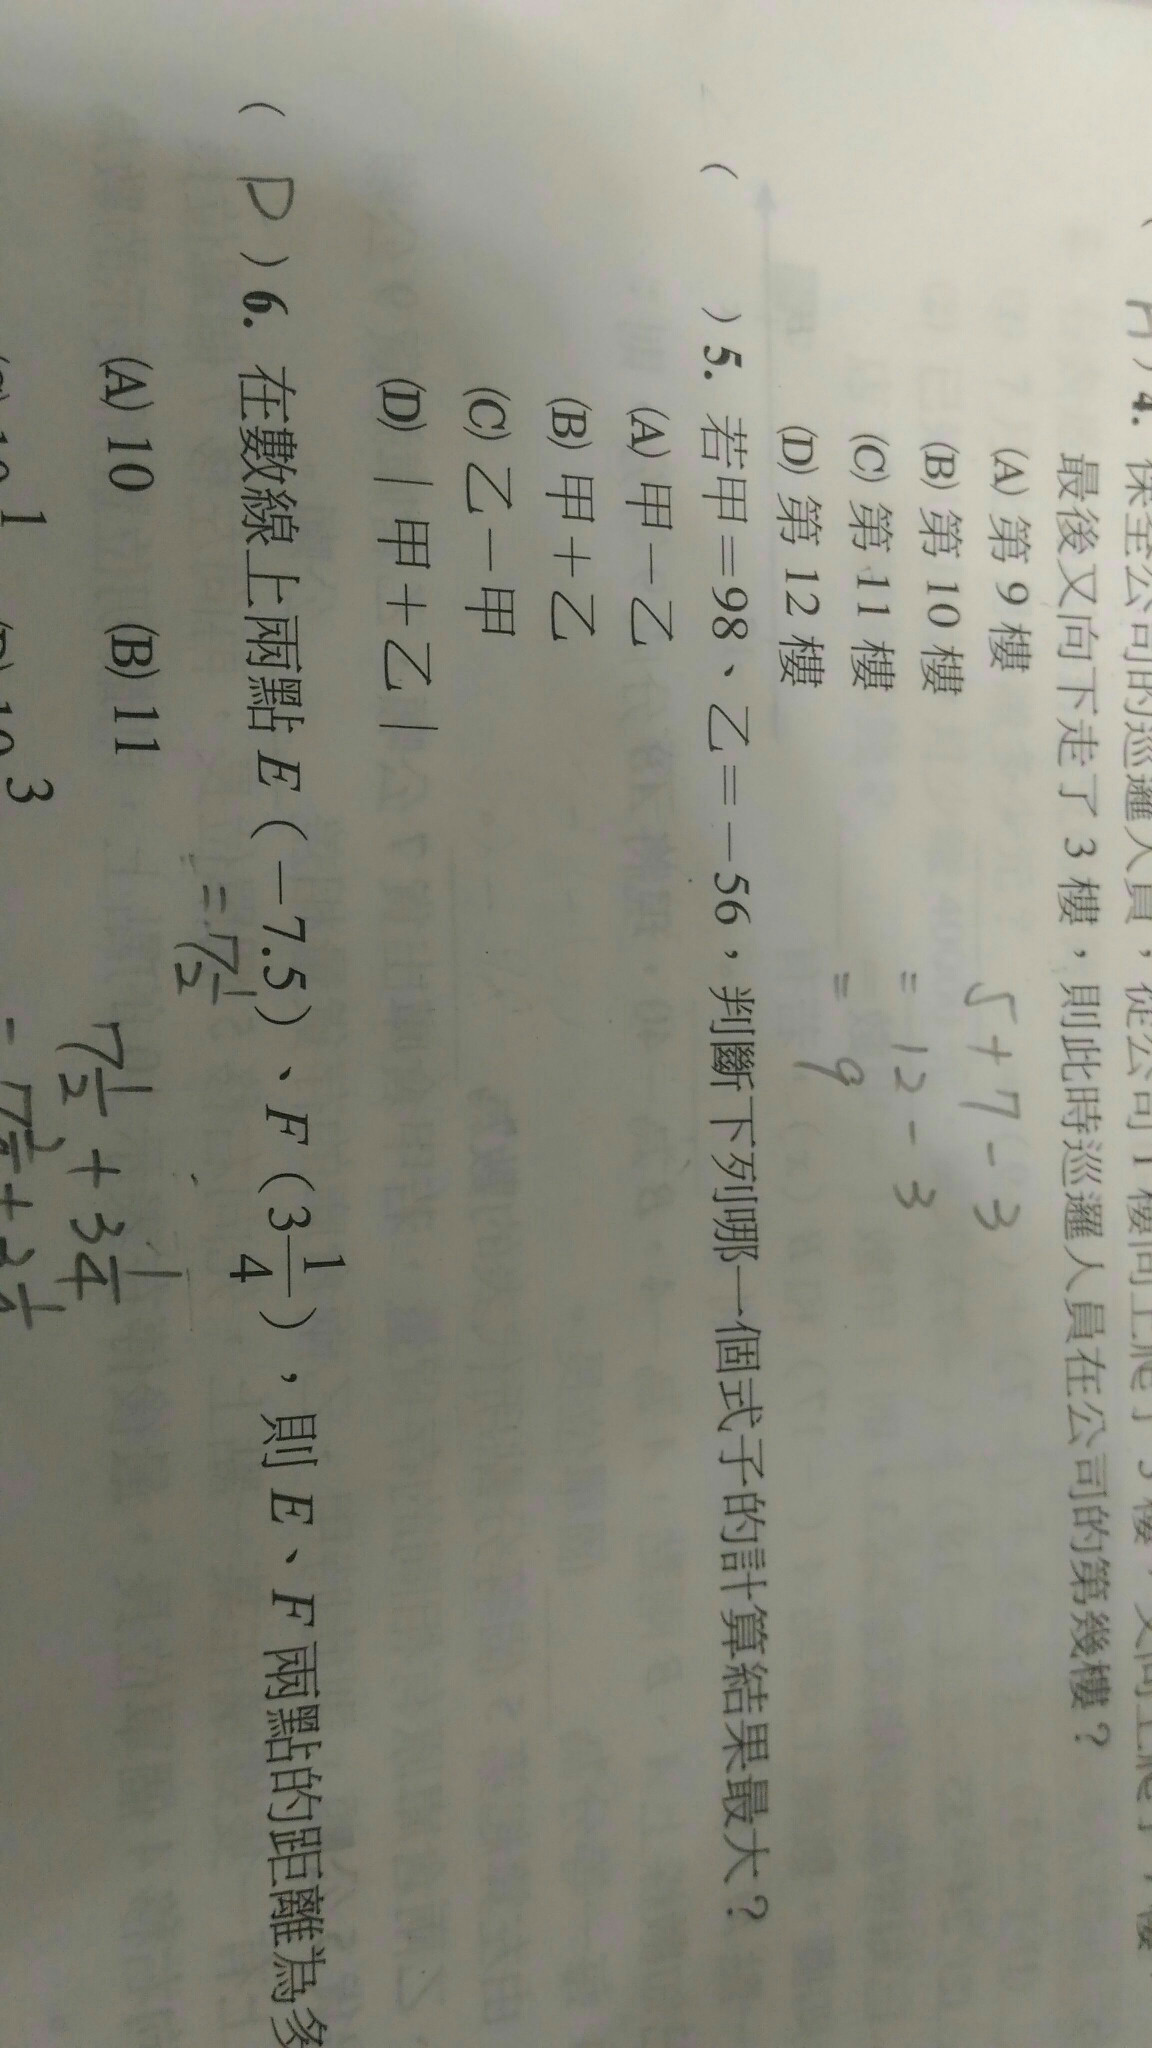 4. 保全公司的巡邏人員，從公司1樓向上爬了5樓，又向上爬了7樓
最後又向下走了3樓，則此時巡邏人員在公司的第幾樓？
(A) 第9樓
(B) 第10樓
(C) 第11樓
(D) 第12樓
5+7-3
=12-3
=9
( )5. 若甲=98、乙=-56，判斷下列哪一個式子的計算結果最大？
(A) 甲-乙
(B) 甲+乙
(C) 乙-甲
(D) |甲+乙|
( D )6. 在數線上兩點E(-7.5)、F(3 1/4)，則E、F兩點的距離為多
=-7 1/2
(A) 10 (B) 11
7 1/2 + 3 1/4